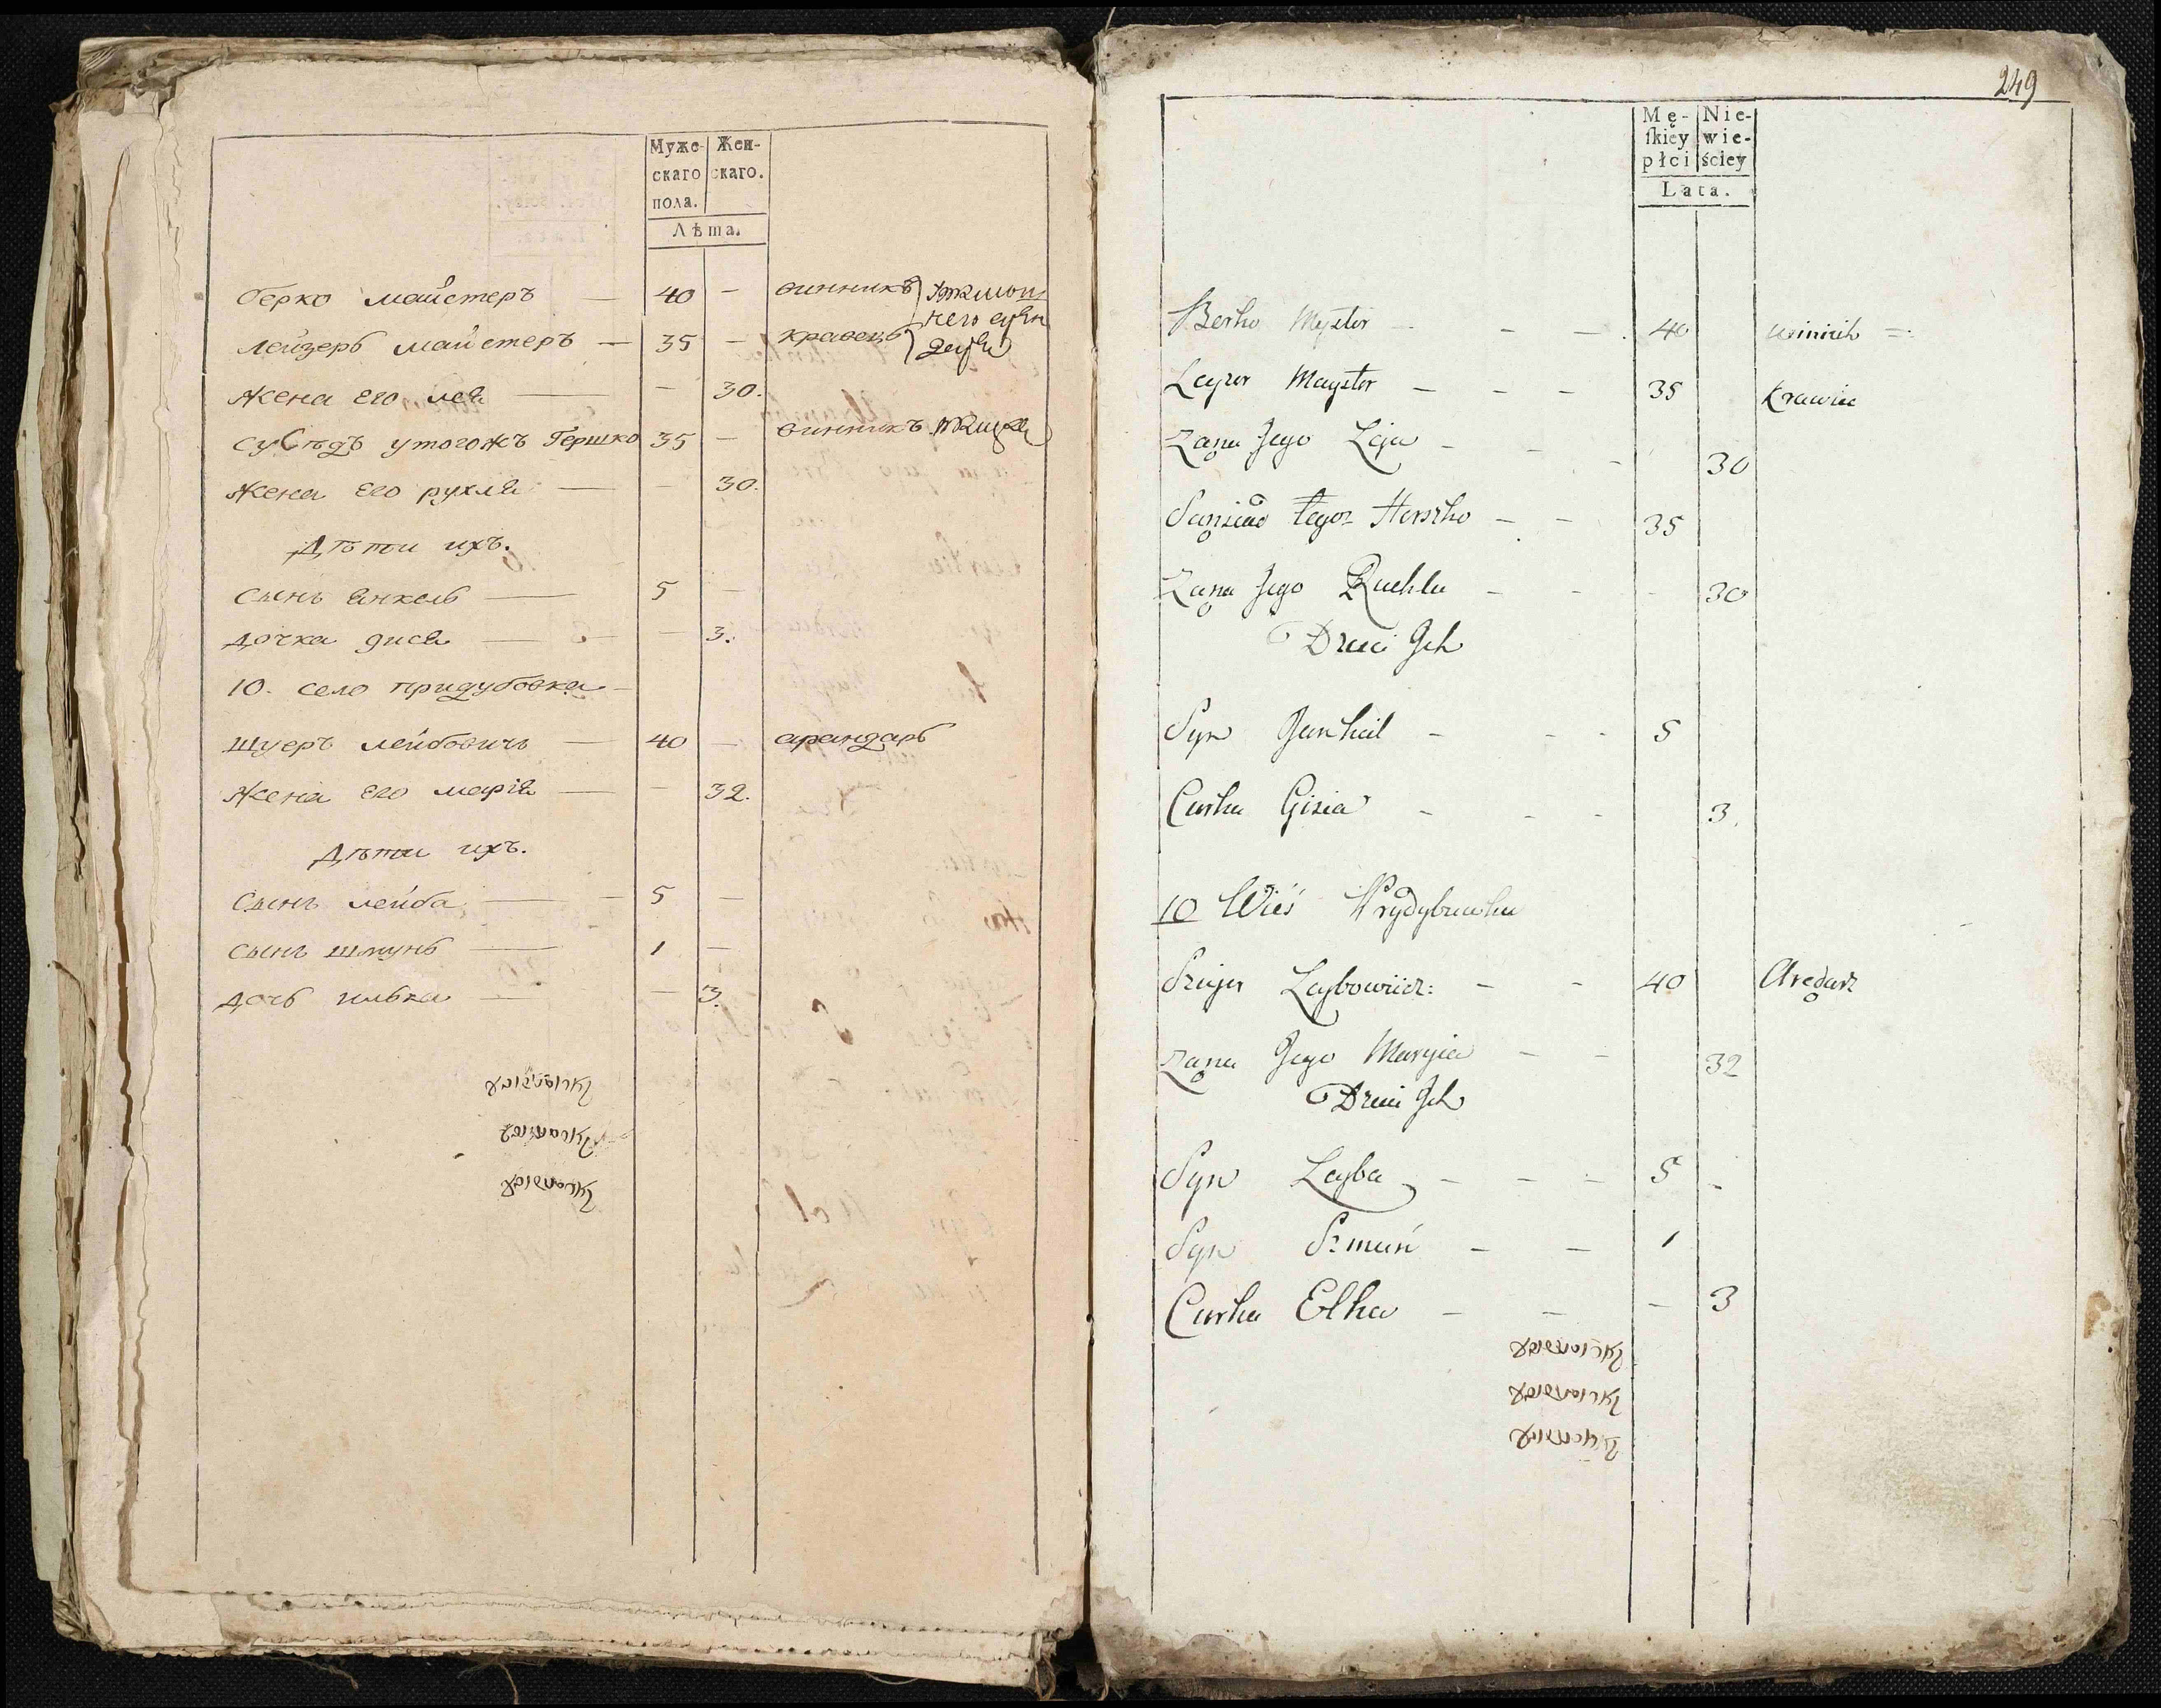 Муже-
скаго
пола.
Жен-
скаго.
Лѣта.
берко майстеръ — 40 — винникъ
лейзерь майстеръ — 35 — кравецъ
жена его лея — — 30.
сусѣдъ утогожъ Гершко 35 — винникъ
жена его рухля — — 30.
Дѣти ихъ.
сынъ янкель — 5 —
дочка дися — — 3.
10. село придубовка —
шуеръ лейбовичъ — 40 — арандарь
жена его марія — — 32.
Дѣти ихъ.
сынъ лейба — 5 —
сынъ шмунь — 1 —
дочь илька — — 3.
249
Mę-
skiey
płci
Nie-
wie-
ściey
Lata.
Berko Myster — — 40 winnik =
Layzer Mayster — — — 35 Krawiec
Zona Jego Leja — — — 30
Sąsiad tegoż Herszko — — 35
Zona Jego Ruchla — — — 30
Dzieci Ich
Syn Jankiel — — — 5
Curka Gisia — — — 3.
10 Wieś Prydybuwka
Szujer Leybowicz: — — 40 Arędarz
Zona Jego Maryia — — 32
Dzieci Ich
Syn Leyba — — — 5 —
Syn Szmuń — — 1
Curka Elka — — — 3